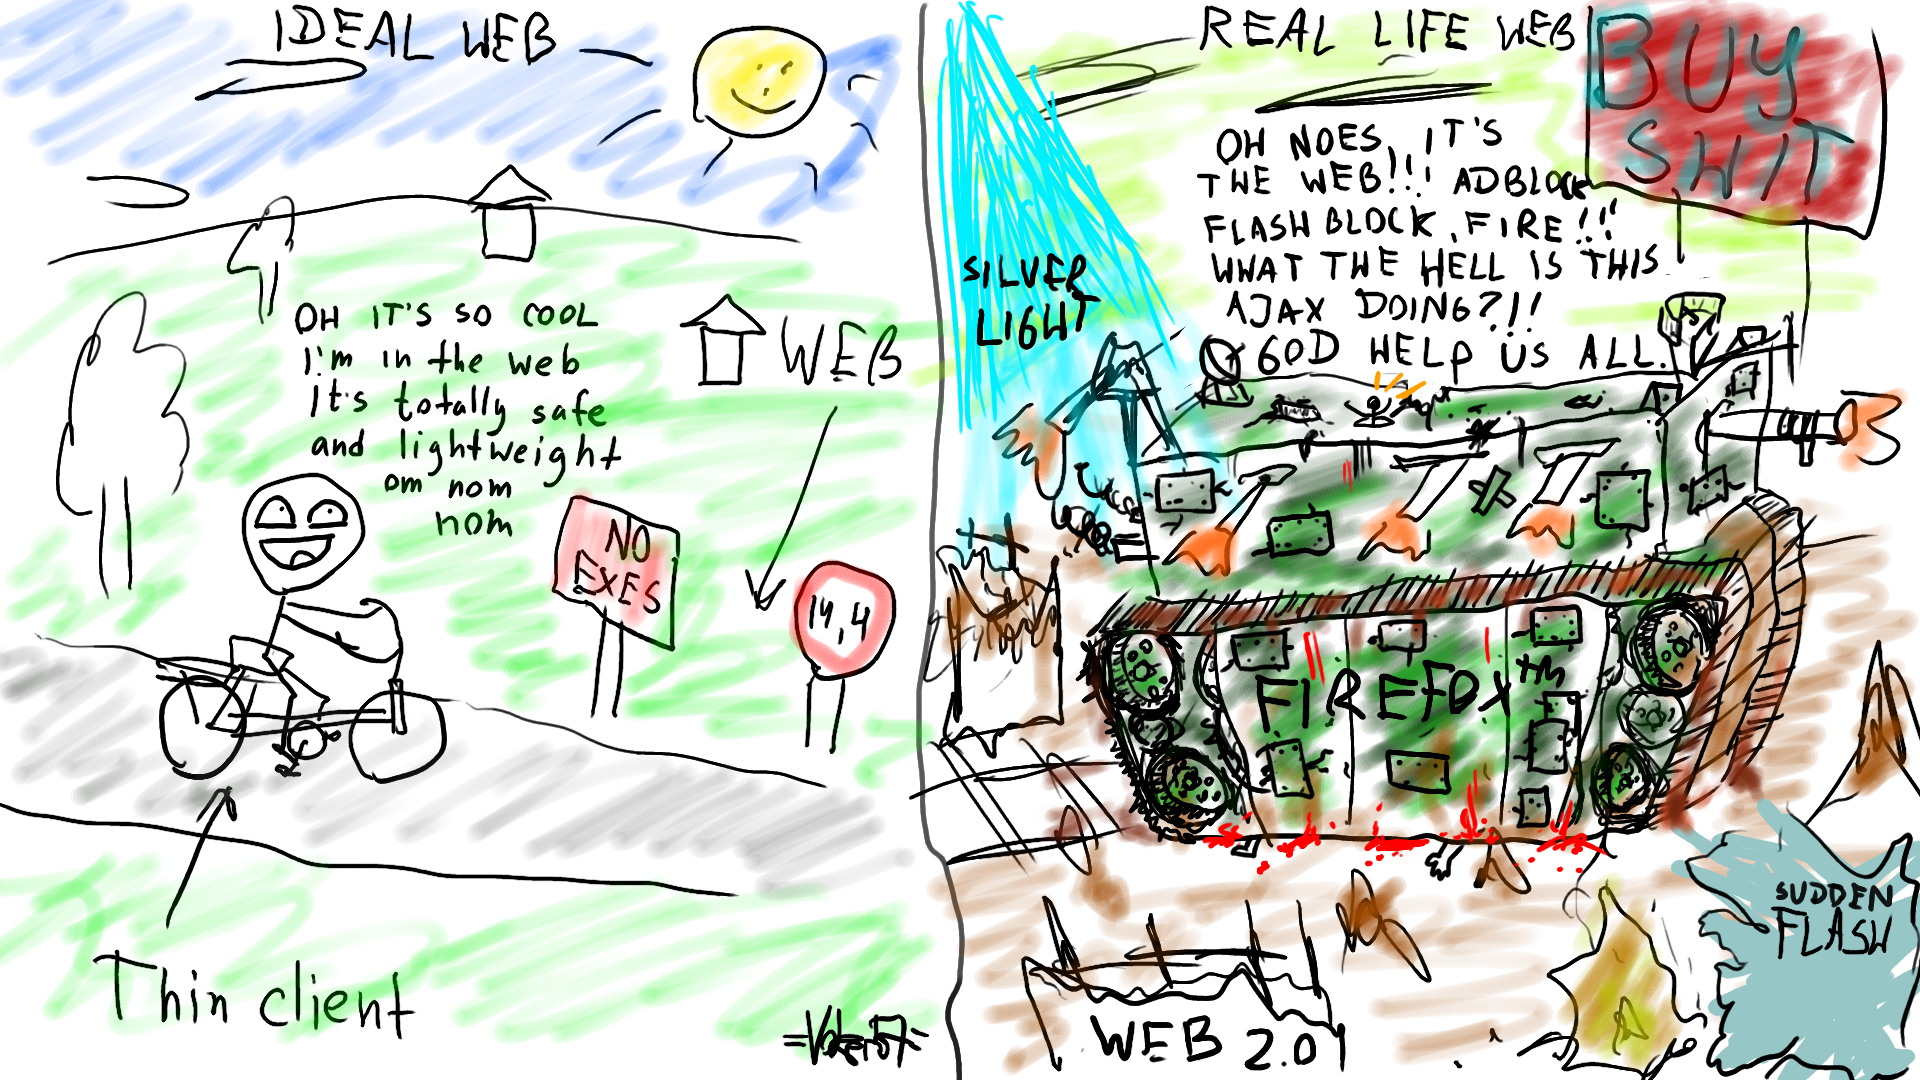 IDEAL WEB
OH IT'S SO COOL
I'm in the web
It's totally safe
and lightweight
om nom
nom
WEB
NO
EXES
14,4
Thin client
REAL LIFE WEB
BUY
SHIT
OH NOES, IT'S
THE WEB!!! ADBLOCK
FLASHBLOCK, FIRE!!!
WHAT THE HELL IS THIS
AJAX DOING?!!
GOD HELP US ALL.
SILVER
LIGHT
FIREFOX TM
SUDDEN
FLASH
WEB 2.0